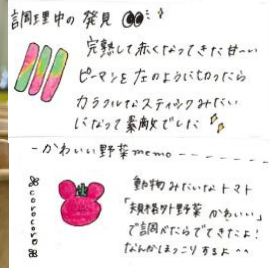 調理中の発見
完熟して赤くなってきた甘ーい
ピーマンを左のように切ったら
カラフルなスティックみたい
になって素敵でした
-かわいい野菜memo-------
動物みたいなトマト
「規格外野菜 かわいい」
で調べたらでてきたよ!
なんかほっこりするよ^^
corocoro